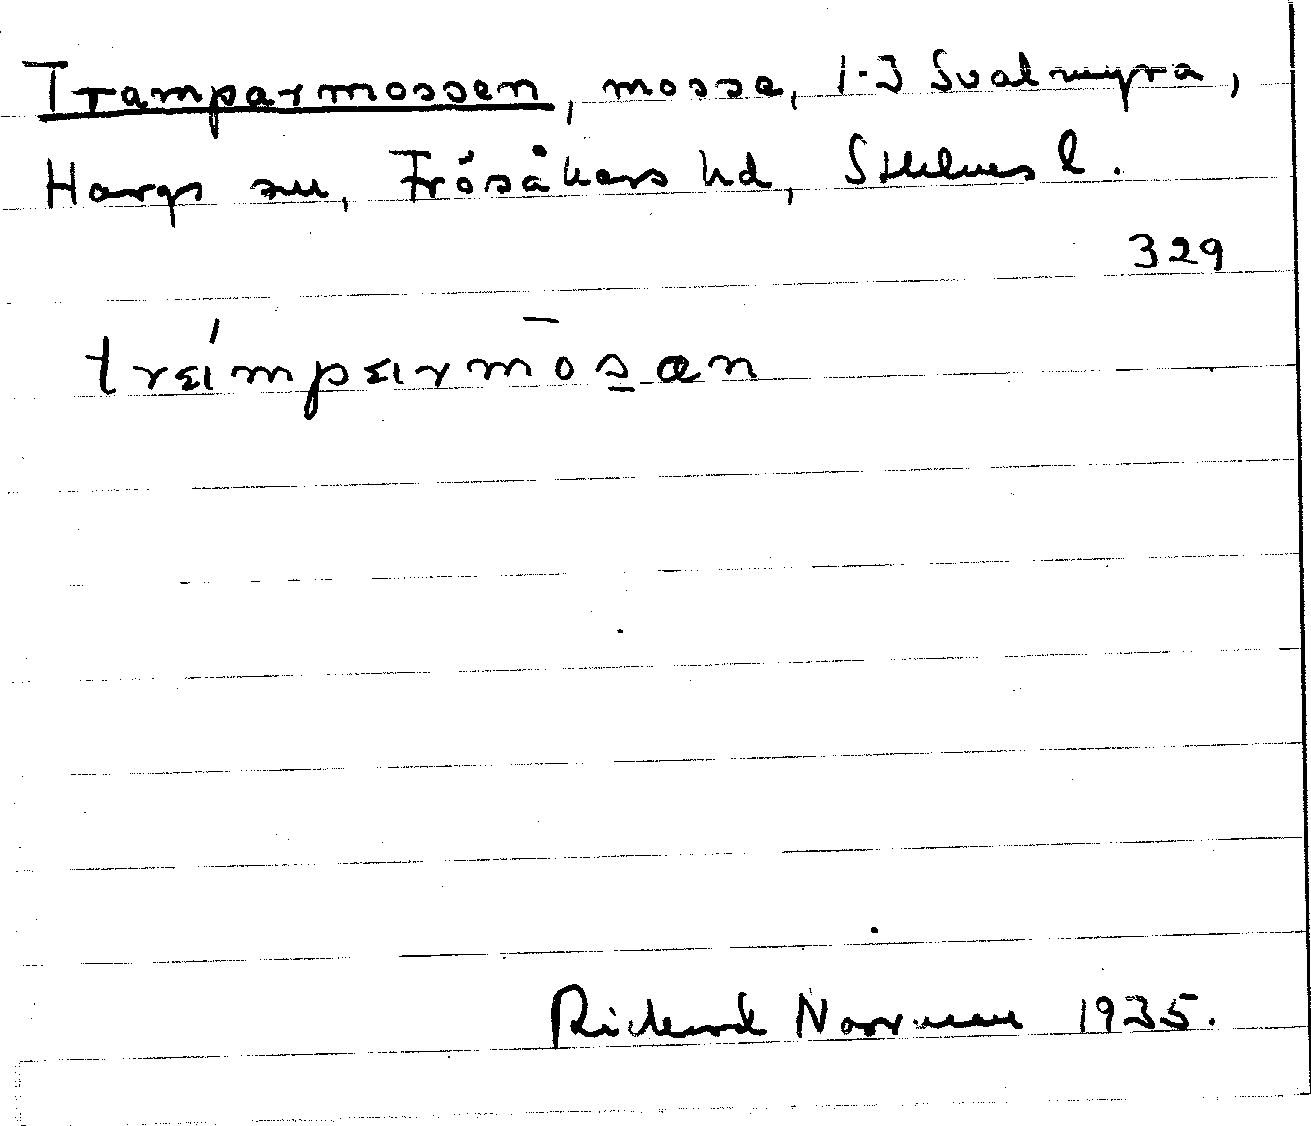 Tramparmossen, mossa, 1-3 Svalmyra,
Hargs sn, Frösåkers hd, Sthlms l.
329
Rickard Norrman 1935.